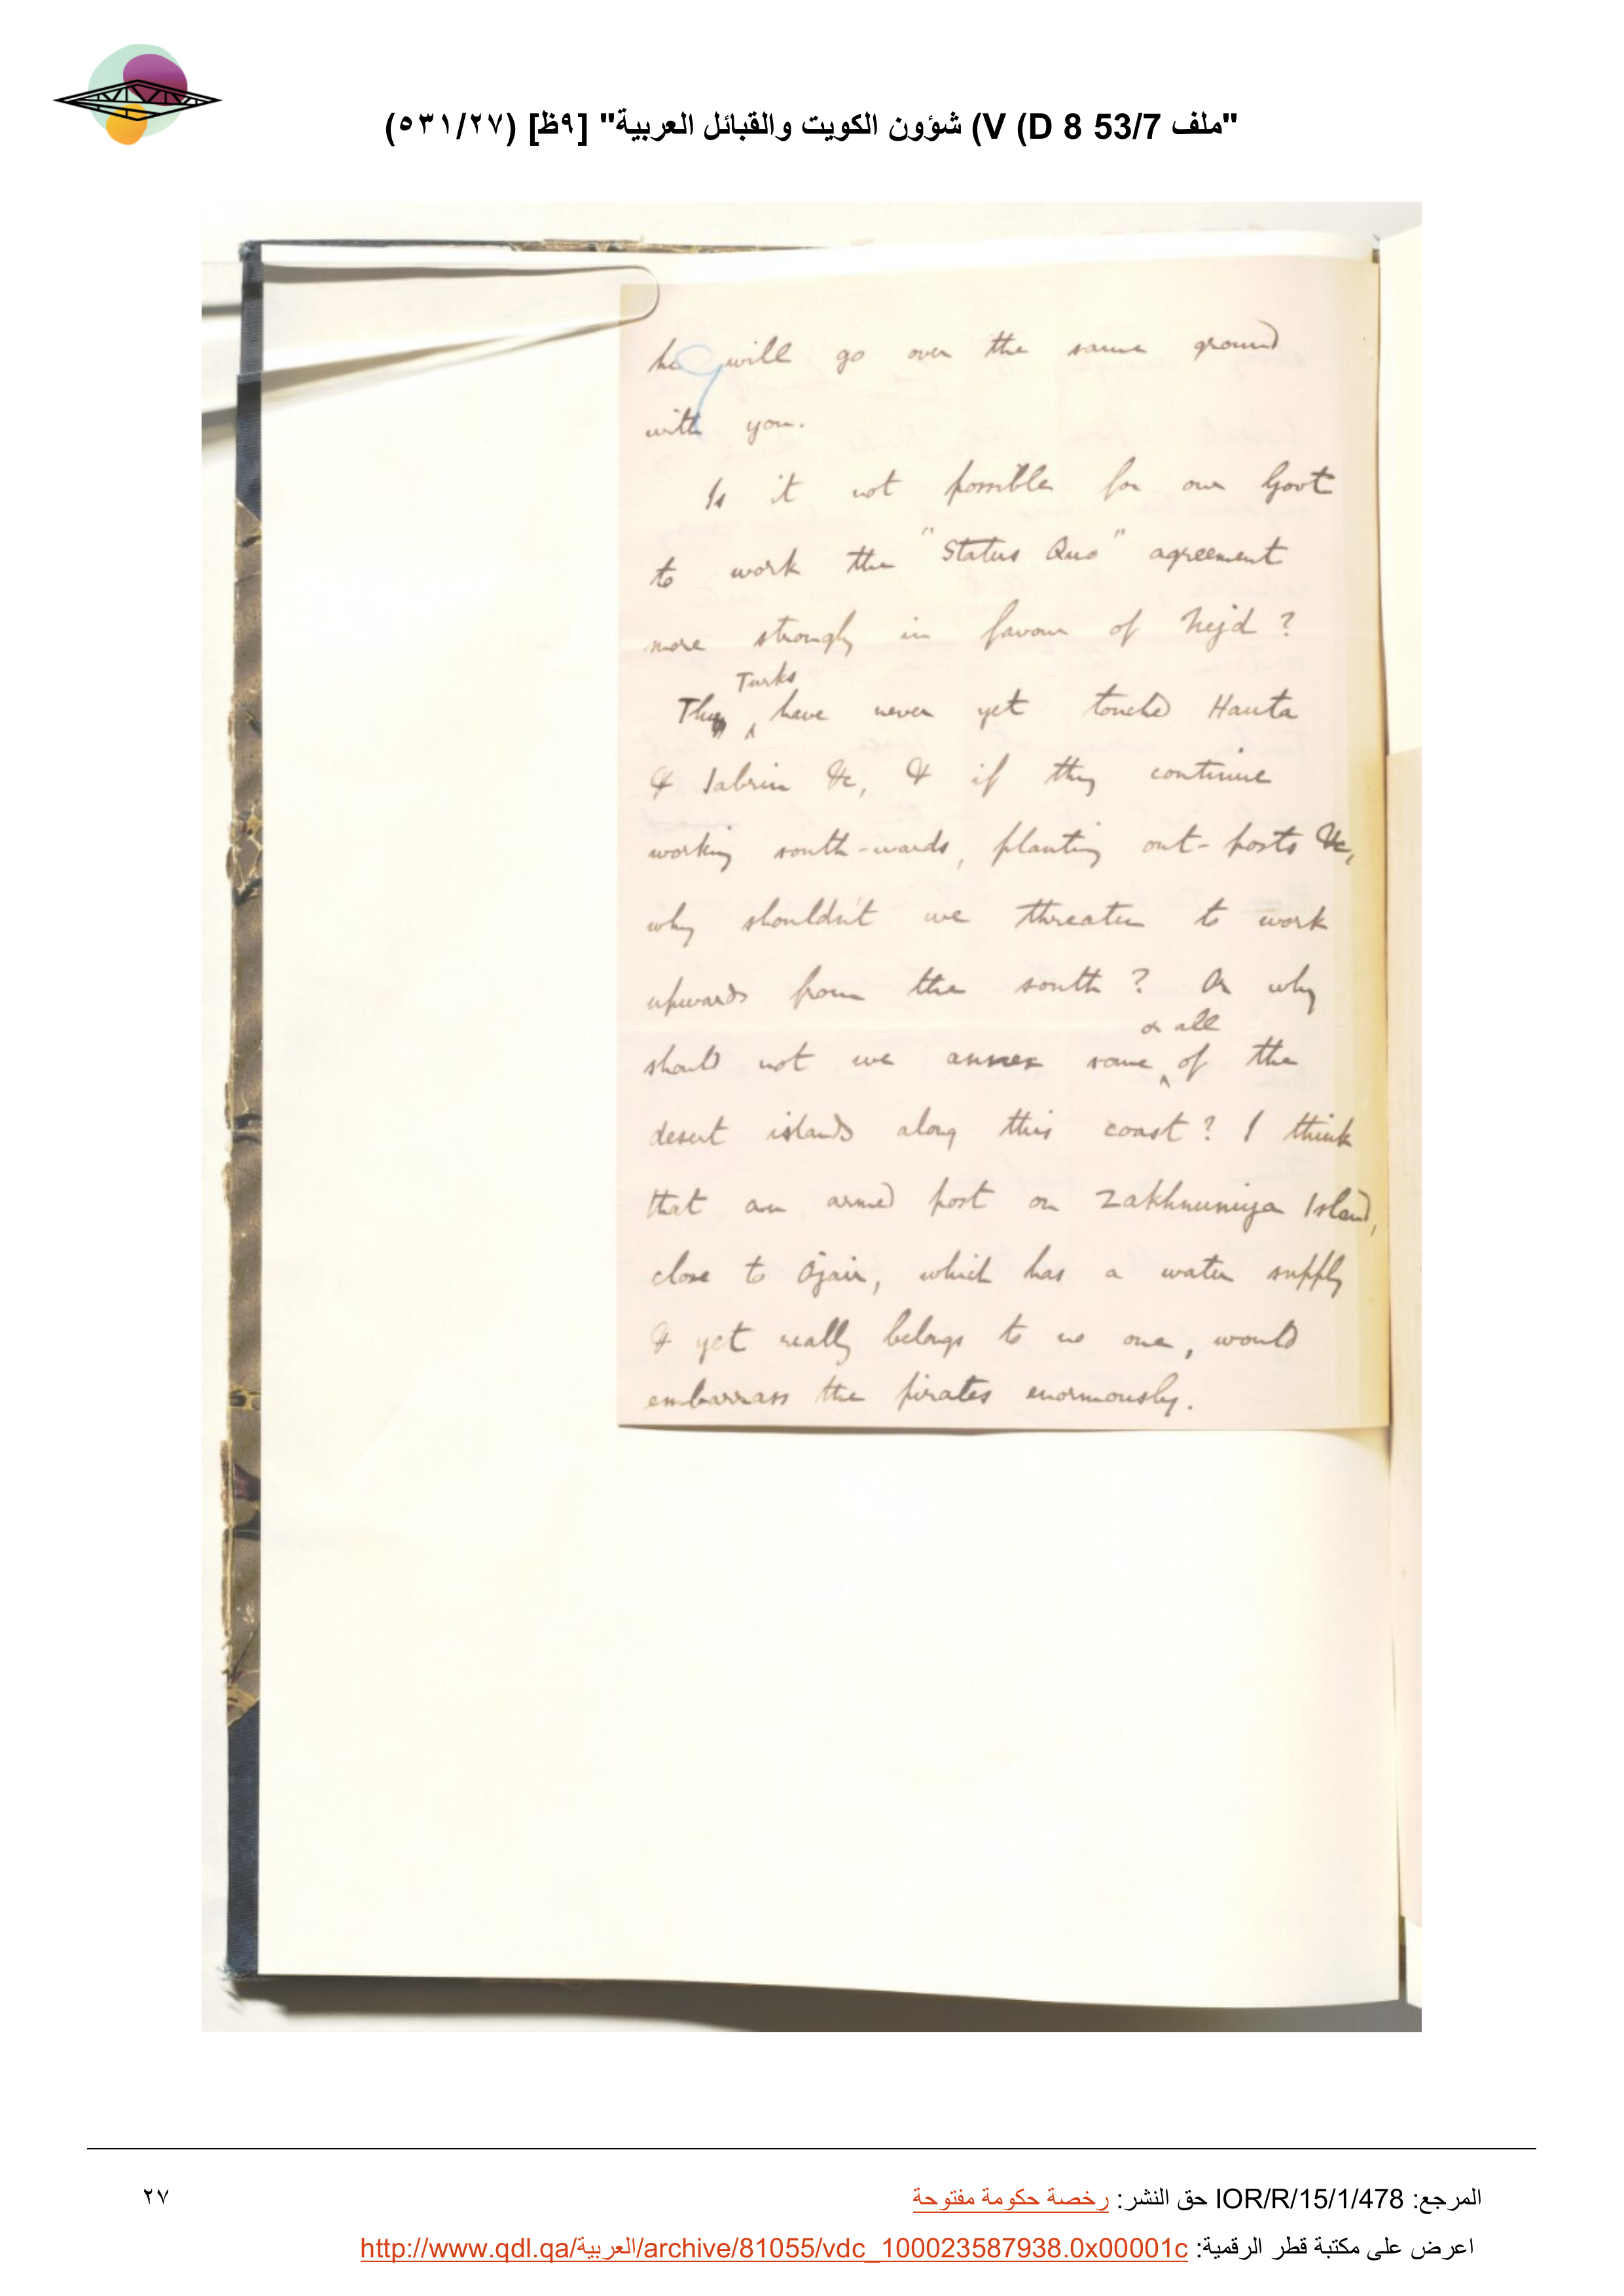 "ملف 53/7 V (D 8) شؤون الكويت والقبائل العربية" [٩ظ] (٥٣١/٢٧)
he will go over the same ground
with you.
Is it not possible for our Govt
to work the "Status Quo" agreement
more strongly in favour of Nejd?
Turks
The have never yet touched Hauta
& Jabrin &c, & if they continue
working south-wards, planting out-posts &c,
why shouldn't we threaten to work
upwards from the south? Or why
or all
should not we annex some of the
desert islands along this coast? I think
that an armed post on Zakhnuniya Island,
close to Ojair, which has a water supply
& yet really belongs to no one, would
embarrass the pirates enormously.
المرجع: IOR/R/15/1/478 حق النشر: رخصة حكومة مفتوحة
٢٧
اعرض على مكتبة قطر الرقمية: http://www.qdl.qa/العربية/archive/81055/vdc_100023587938.0x00001c